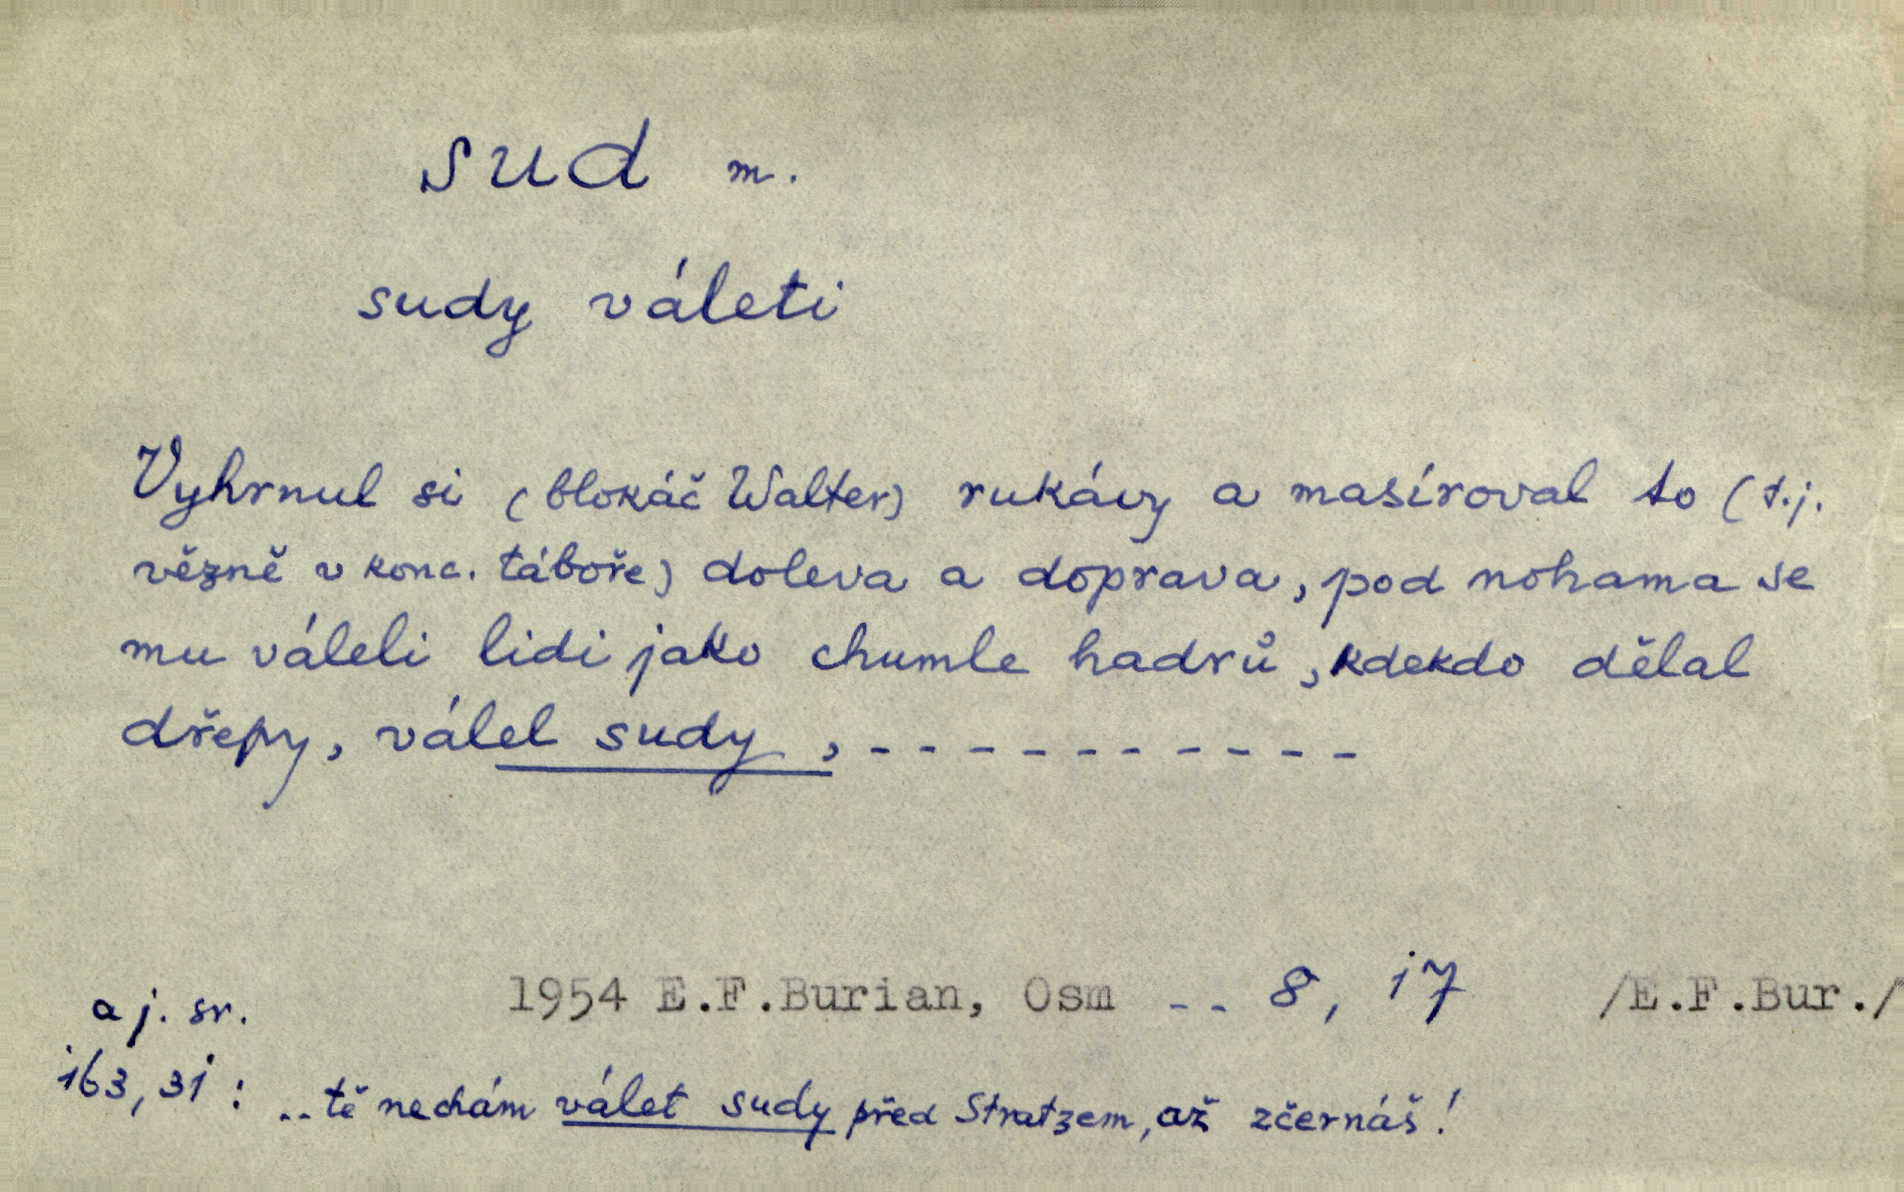 sud m.
sudy váleti
Vyhrnul si (blokáč Walter) rukávy a masíroval to (t.j.
vězně v konc. táboře) doleva a doprava, pod nohama se
mu váleli lidi jako chumle hadrů, kdekdo dělal
dřepy, válel sudy, - - - - - - - - - -
1954 E.F.Burian, Osm -- 8, 17 /E.F.Bur./
a j. sr.
163, 31: ..tě nechám válet sudy před Stratzem, až zčernáš!